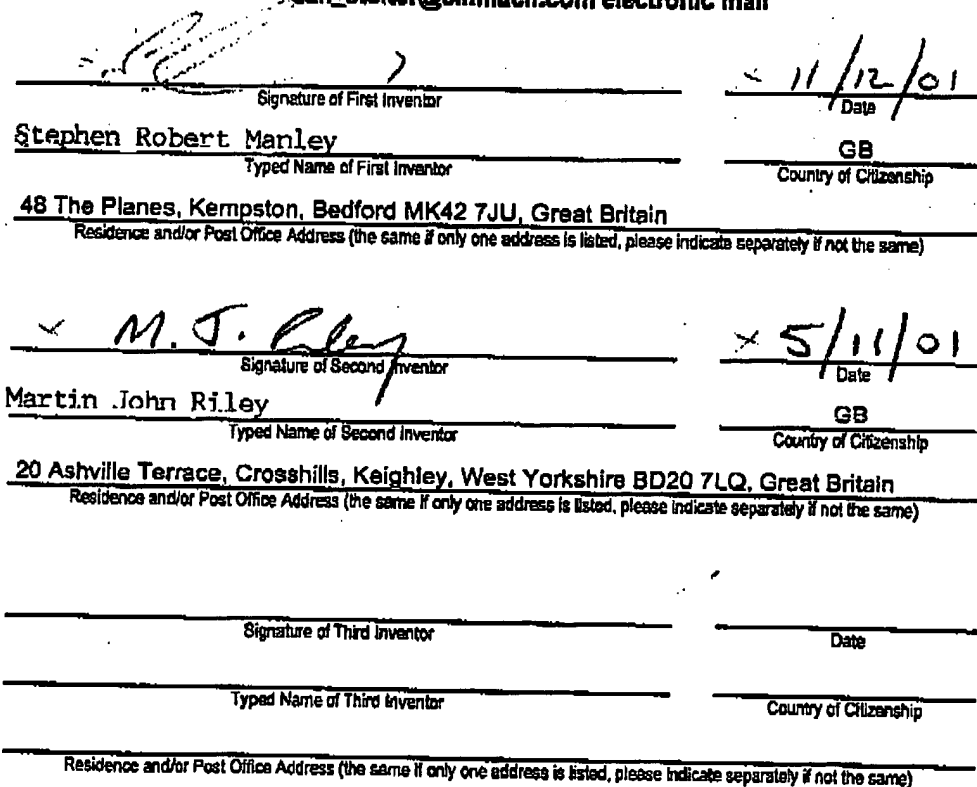 electronic mail
Signature of First Inventor
11/12/01
Date
Stephen Robert Manley
Typed Name of First Inventor
GB
Country of Citizenship
48 The Planes, Kempston, Bedford MK42 7JU, Great Britain
Residence and/or Post Office Address (the same if only one address is listed, please indicate separately if not the same)
x M. J. Riley
Signature of Second Inventor
x 5/11/01
Date
Martin John Riley
Typed Name of Second Inventor
GB
Country of Citizenship
20 Ashville Terrace, Crosshills, Keighley, West Yorkshire BD20 7LQ, Great Britain
Residence and/or Post Office Address (the same if only one address is listed, please indicate separately if not the same)
Signature of Third Inventor
Date
Typed Name of Third Inventor
Country of Citizenship
Residence and/or Post Office Address (the same if only one address is listed, please indicate separately if not the same)